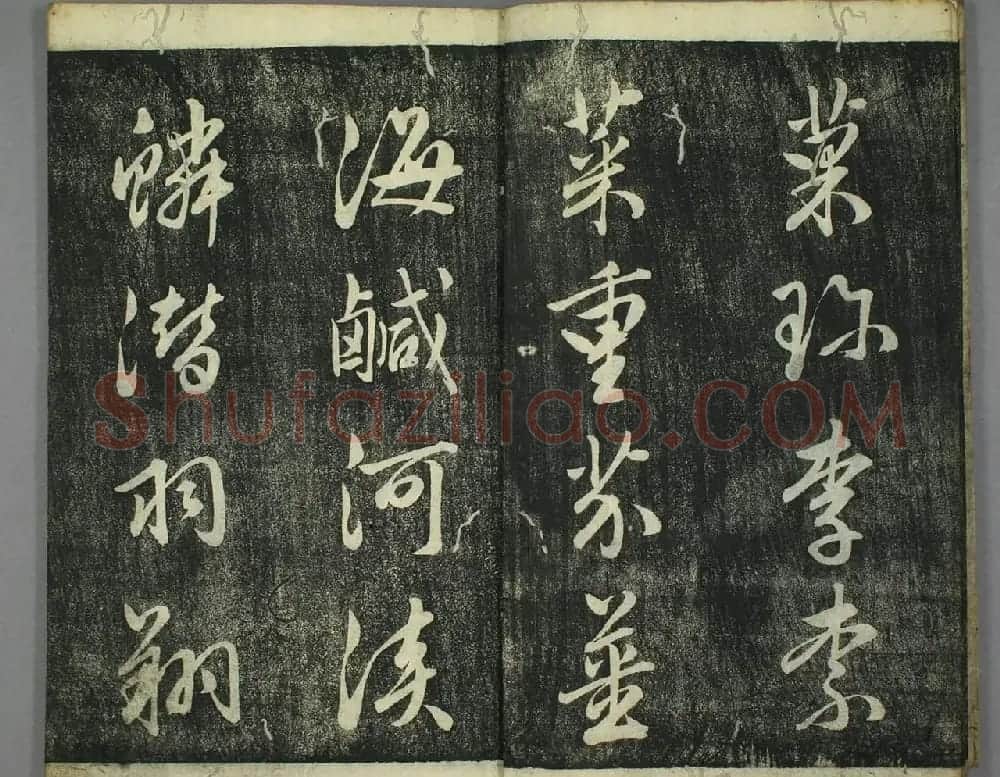 菓珍李柰
菜重芥薑
海鹹河淡
鱗潛羽翔
Shufaziliao.COM